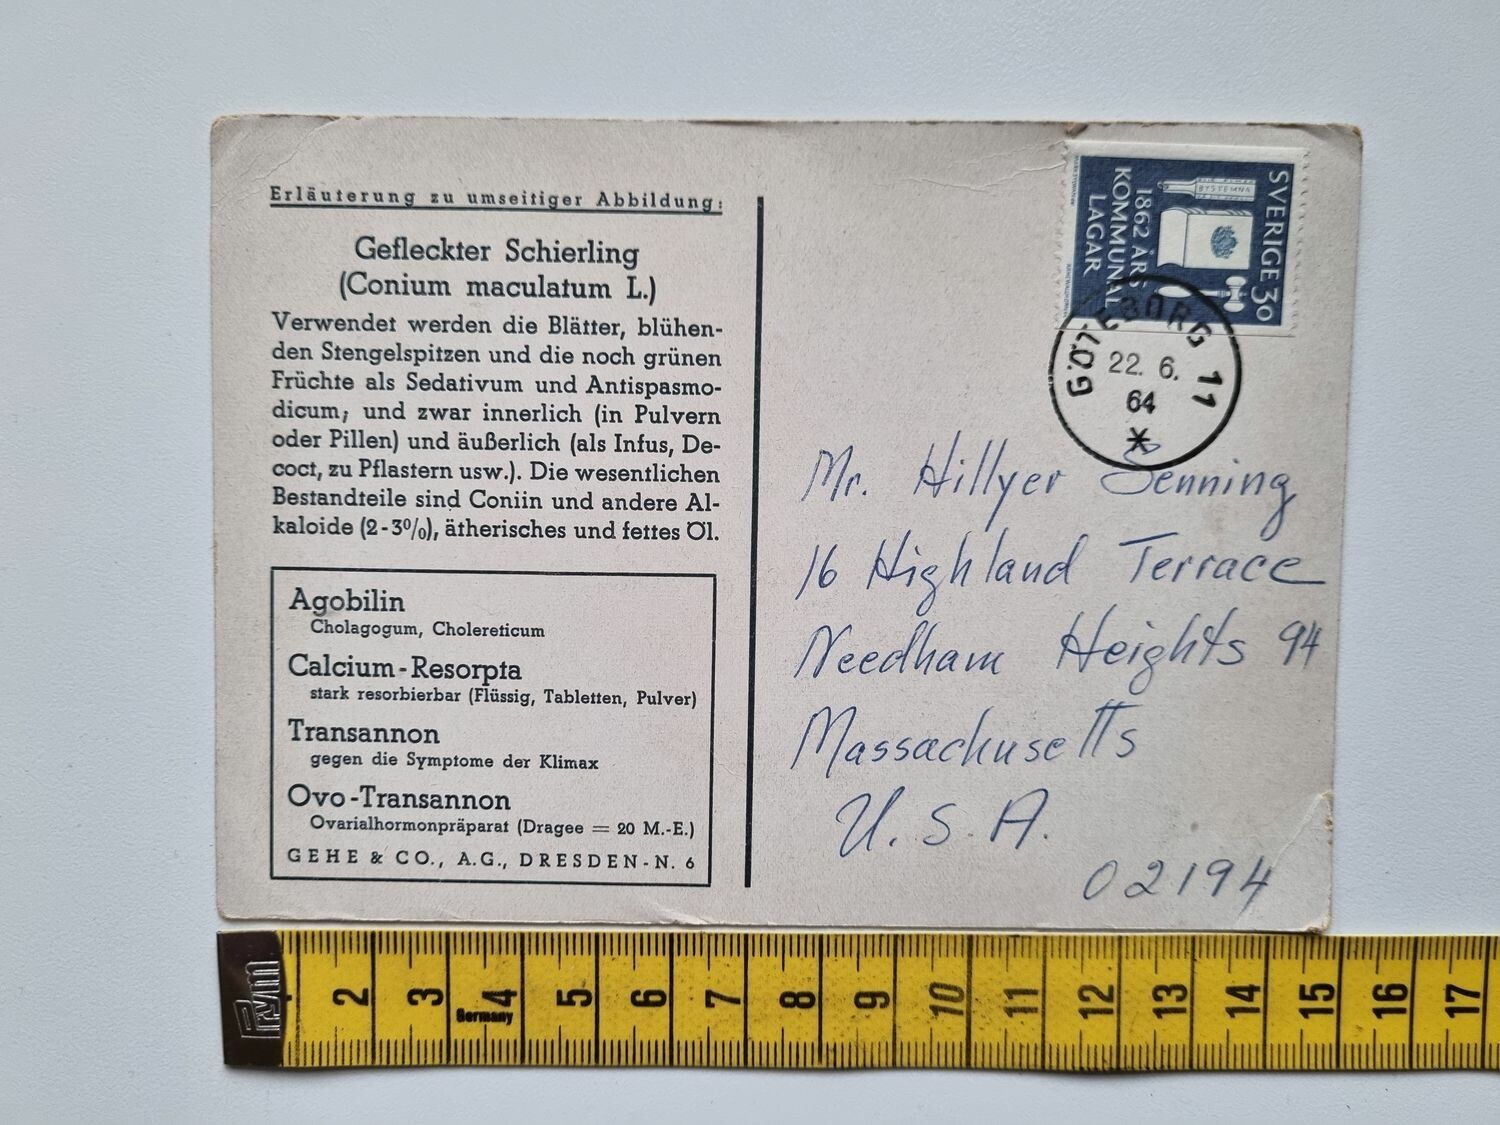 Erläuterung zu umseitiger Abbildung:
Gefleckter Schierling
(Conium maculatum L.)
Verwendet werden die Blätter, blühen-
den Stengelspitzen und die noch grünen
Früchte als Sedativum und Antispasmo-
dicum; und zwar innerlich (in Pulvern
oder Pillen) und äußerlich (als Infus, De-
coct, zu Pflastern usw.). Die wesentlichen
Bestandteile sind Coniin und andere Al-
kaloide (2-3%), ätherisches und fettes Öl.
Agobilin
Cholagogum, Cholereticum
Calcium-Resorpta
stark resorbierbar (Flüssig, Tabletten, Pulver)
Transannon
gegen die Symptome der Klimax
Ovo-Transannon
Ovarialhormonpräparat (Dragee = 20 M.-E.)
GEHE & CO., A.G., DRESDEN-N. 6
SVERIGE 30
BYSTEMNA
1862 ÅRS
KOMMUNAL
LAGAR
GÖTEBORG 11
22. 6.
64
Mr. Hillyer Senning
16 Highland Terrace
Needham Heights 94
Massachusetts
U.S.A.
02194
Prym
2 3 4 5 6 7 8 9 10 11 12 13 14 15 16 17
Germany